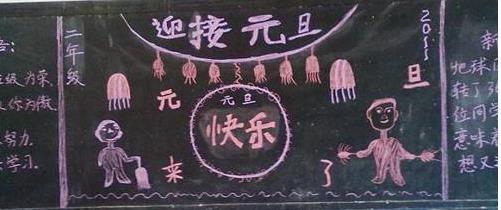 迎接元旦
二年级
2011
元旦来了
元旦
快乐
级为荣
你为傲
努力
学习
新
地球
转了3
位同
意味
想又